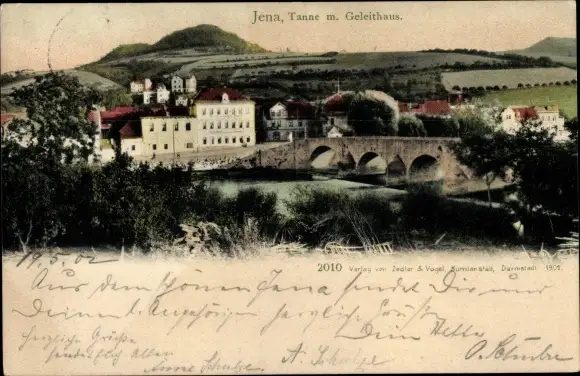 Jena, Tanne m. Geleithaus.
2010 Verlag von Zedler & Vogel, Kunstanstalt, Darmstadt 1901.
19.5.02
Aus dem schönen Jena sendet Dir und
Deinen l. Angehörigen herzliche Grüße
Dein Vetter
herzliche Grüße
sendet Allen
Anne Schulze
A. Schulze
O. Schulze